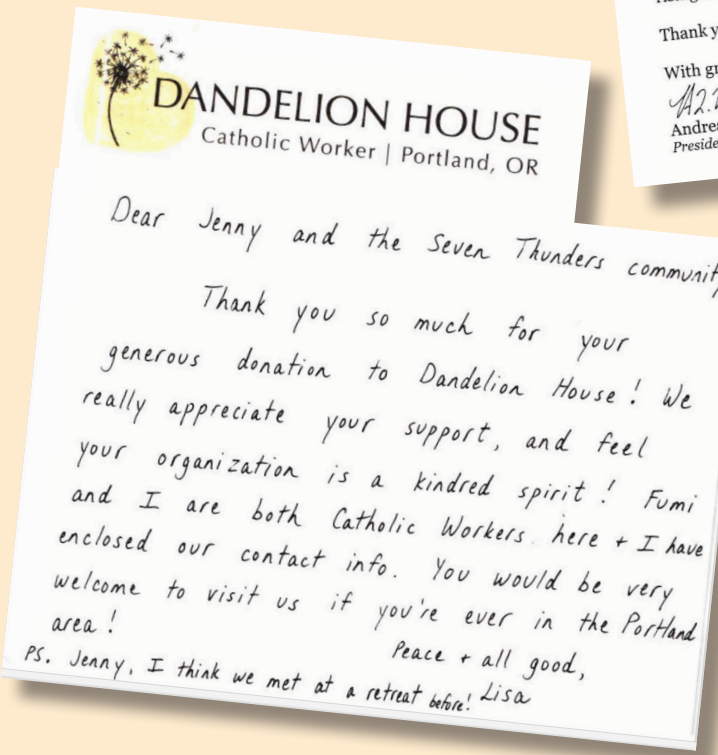 DANDELION HOUSE
Catholic Worker | Portland, OR
Dear Jenny and the Seven Thunders community
Thank you so much for your
generous donation to Dandelion House! We
really appreciate your support, and feel
your organization is a kindred spirit! Fumi
and I are both Catholic Workers here + I have
enclosed our contact info. You would be very
welcome to visit us if you're ever in the Portland
area!
Peace + all good,
Lisa
PS. Jenny, I think we met at a retreat before!
Thank y
With gr
Andrea
Preside